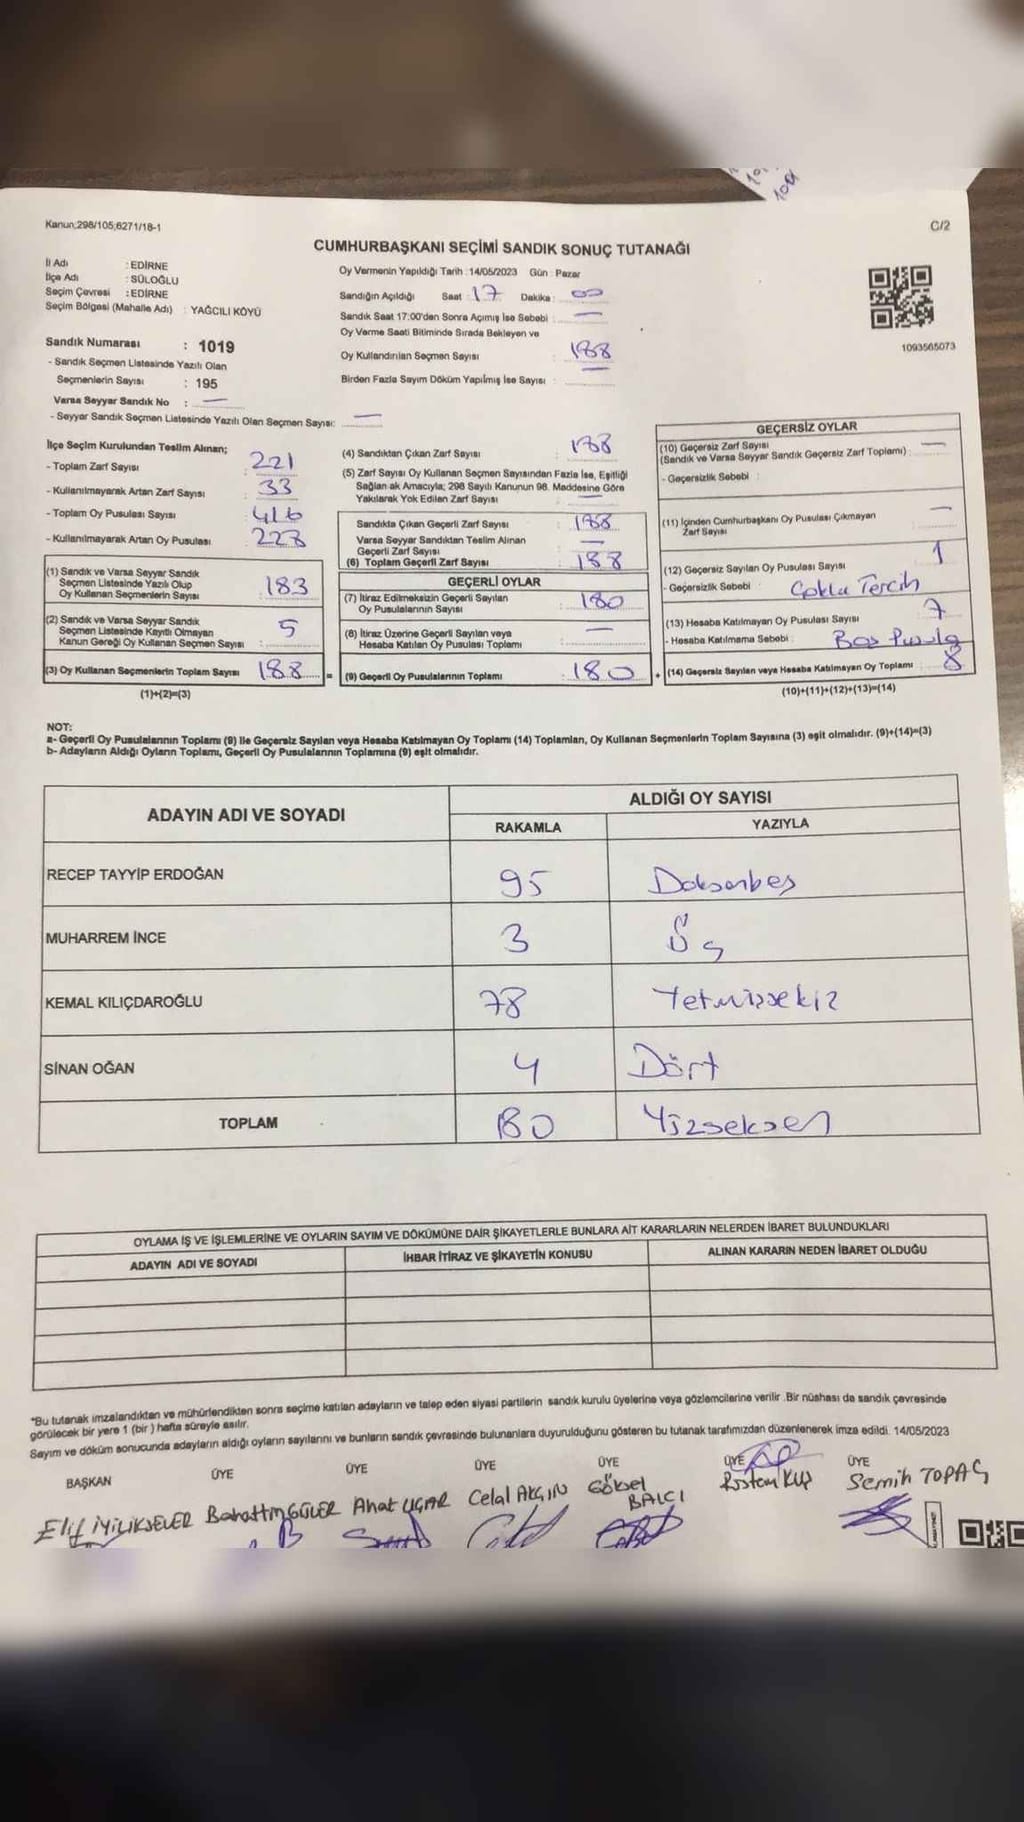 Kanun;298/105;6271/18-1
C/2
CUMHURBAŞKANI SEÇİMİ SANDIK SONUÇ TUTANAĞI
İl Adı : EDİRNE
İlçe Adı : SÜLOĞLU
Seçim Çevresi : EDİRNE
Seçim Bölgesi (Mahalle Adı) : YAĞCILI KÖYÜ
Sandık Numarası : 1019
- Sandık Seçmen Listesinde Yazılı Olan
Seçmenlerin Sayısı : 195
Varsa Seyyar Sandık No : —
- Seyyar Sandık Seçmen Listesinde Yazılı Olan Seçmen Sayısı: —
Oy Vermenin Yapıldığı Tarih : 14/05/2023 Gün : Pazar
Sandığın Açıldığı Saat : 17 Dakika : 00
Sandık Saat 17:00'den Sonra Açımış İse Sebebi : —
Oy Verme Saati Bitiminde Sırada Bekleyen ve
Oy Kullandırılan Seçmen Sayısı : 188
Birden Fazla Sayım Döküm Yapılmış İse Sayısı :
1093565073
İlçe Seçim Kurulundan Teslim Alınan;
- Toplam Zarf Sayısı : 221
- Kullanılmayarak Artan Zarf Sayısı : 33
- Toplam Oy Pusulası Sayısı : 416
- Kullanılmayarak Artan Oy Pusulası : 228
(1) Sandık ve Varsa Seyyar Sandık
Seçmen Listesinde Yazılı Olup
Oy Kullanan Seçmenlerin Sayısı : 183
(2) Sandık ve Varsa Seyyar Sandık
Seçmen Listesinde Kayıtlı Olmayan
Kanun Gereği Oy Kullanan Seçmen Sayısı : 5
(3) Oy Kullanan Seçmenlerin Toplam Sayısı : 188 =
(1)+(2)=(3)
(4) Sandıktan Çıkan Zarf Sayısı : 188
(5) Zarf Sayısı Oy Kullanan Seçmen Sayısından Fazla İse, Eşitliği
Sağlamak Amacıyla; 298 Sayılı Kanunun 98. Maddesine Göre
Yakılarak Yok Edilen Zarf Sayısı : —
Sandıkta Çıkan Geçerli Zarf Sayısı : 188
Varsa Seyyar Sandıktan Teslim Alınan
Geçerli Zarf Sayısı : —
(6) Toplam Geçerli Zarf Sayısı : 188
GEÇERLİ OYLAR
(7) İtiraz Edilmeksizin Geçerli Sayılan
Oy Pusulalarının Sayısı : 180
(8) İtiraz Üzerine Geçerli Sayılan veya
Hesaba Katılan Oy Pusulası Toplamı : —
(9) Geçerli Oy Pusulalarının Toplamı : 180 +
GEÇERSİZ OYLAR
(10) Geçersiz Zarf Sayısı
(Sandık ve Varsa Seyyar Sandık Geçersiz Zarf Toplamı) : —
- Geçersizlik Sebebi :
(11) İçinden Cumhurbaşkanı Oy Pusulası Çıkmayan
Zarf Sayısı : —
(12) Geçersiz Sayılan Oy Pusulası Sayısı : 1
- Geçersizlik Sebebi : Çoklu Tercih
(13) Hesaba Katılmayan Oy Pusulası Sayısı : 7
- Hesaba Katılmama Sebebi : Boş Pusula
(14) Geçersiz Sayılan veya Hesaba Katılmayan Oy Toplamı : 8
(10)+(11)+(12)+(13)=(14)
NOT:
a- Geçerli Oy Pusulalarının Toplamı (9) İle Geçersiz Sayılan veya Hesaba Katılmayan Oy Toplamı (14) Toplamları, Oy Kullanan Seçmenlerin Toplam Sayısına (3) eşit olmalıdır. (9)+(14)=(3)
b- Adayların Aldığı Oyların Toplamı, Geçerli Oy Pusulalarının Toplamına (9) eşit olmalıdır.
ADAYIN ADI VE SOYADI
ALDIĞI OY SAYISI
RAKAMLA YAZIYLA
RECEP TAYYİP ERDOĞAN 95 Doksanbeş
MUHARREM İNCE 3 Üç
KEMAL KILIÇDAROĞLU 78 Yetmişsekiz
SİNAN OĞAN 4 Dört
TOPLAM 180 Yüzseksen
OYLAMA İŞ VE İŞLEMLERİNE VE OYLARIN SAYIM VE DÖKÜMÜNE DAİR ŞİKAYETLERLE BUNLARA AİT KARARLARIN NELERDEN İBARET BULUNDUKLARI
ADAYIN ADI VE SOYADI İHBAR İTİRAZ VE ŞİKAYETİN KONUSU ALINAN KARARIN NEDEN İBARET OLDUĞU
*Bu tutanak imzalandıktan ve mühürlendikten sonra seçime katılan adayların ve talep eden siyasi partilerin sandık kurulu üyelerine veya gözlemcilerine verilir .Bir nüshası da sandık çevresinde
görülecek bir yere 1 (bir ) hafta süreyle asılır.
Sayım ve döküm sonucunda adayların aldığı oyların sayılarını ve bunların sandık çevresinde bulunanlara duyurulduğunu gösteren bu tutanak tarafımızdan düzenlenerek imza edildi. 14/05/2023
BAŞKAN ÜYE ÜYE ÜYE ÜYE ÜYE ÜYE
Elif İYİLİKSEVER Bahattin GÜLER Ahat UÇAR Celal AKGÜN Göksel BALCI Rüstem KUŞ Semih TOPAÇ